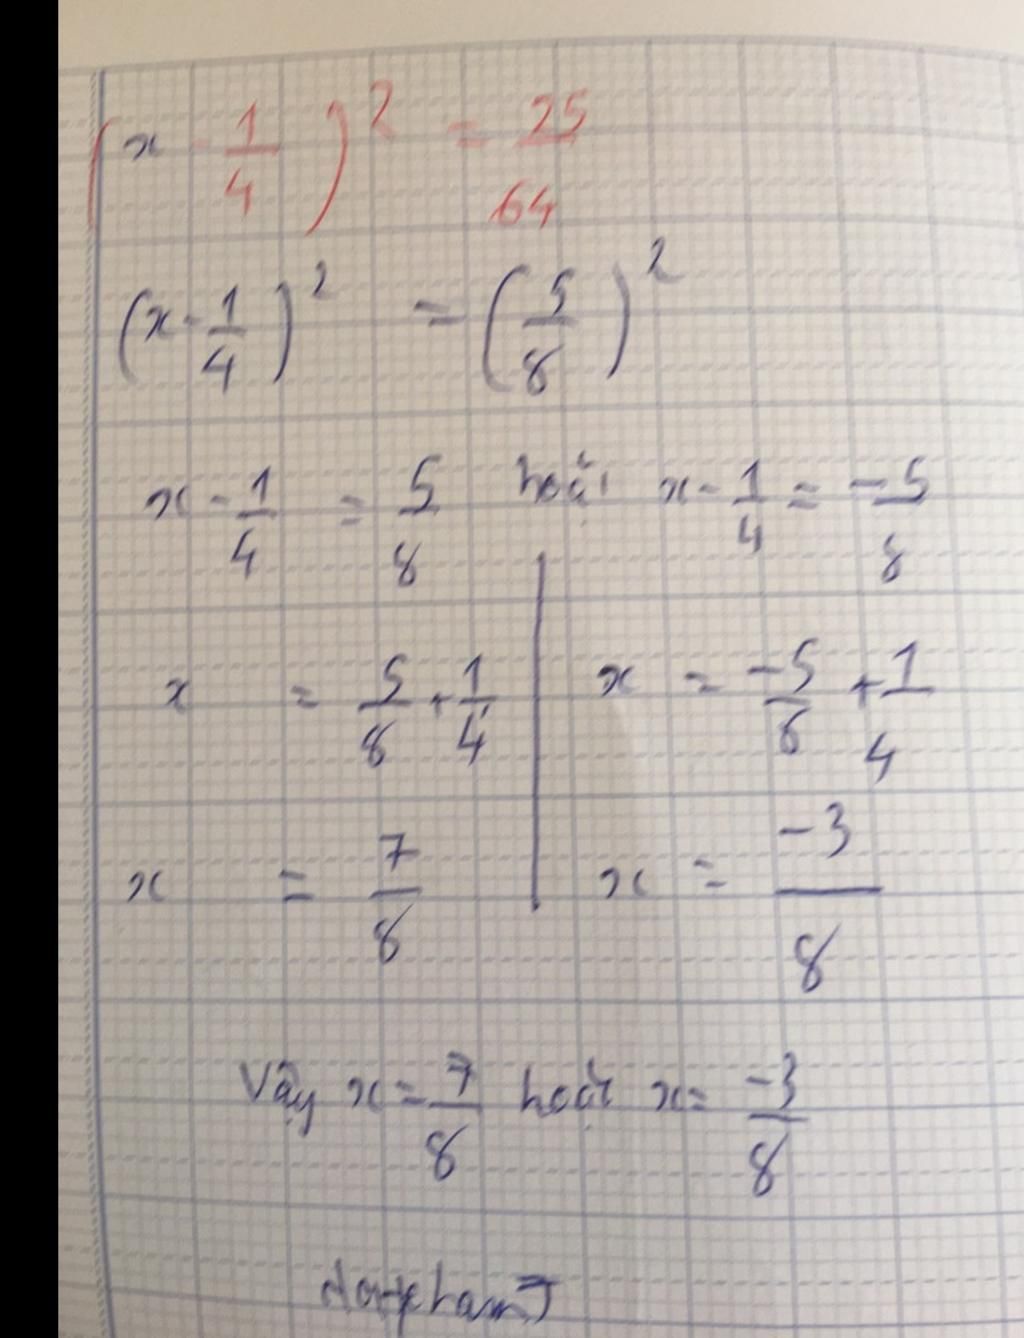 (x - 1/4)² = 25/64
(x - 1/4)² = (5/8)²
x - 1/4 = 5/8 hoặc x - 1/4 = -5/8
x = 5/8 + 1/4 | x = -5/8 + 1/4
x = 7/8 | x = -3/8
Vậy x = 7/8 hoặc x = -3/8